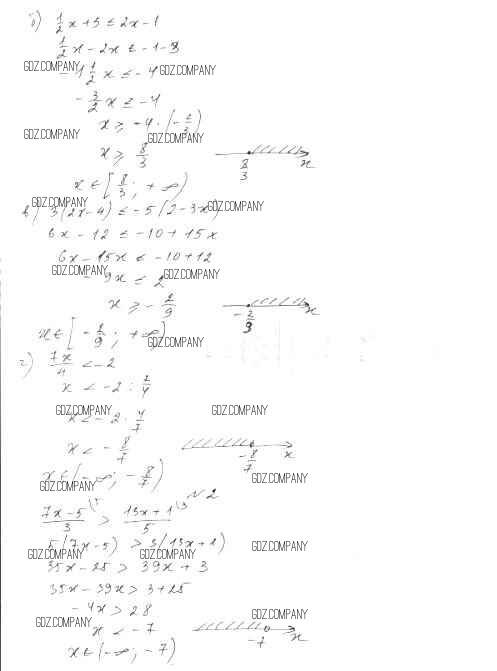 б) 1/2 x + 3 ≤ 2x - 1
1/2 x - 2x ≤ -1 - 3
GDZ.COMPANY - 1 1/2 x ≤ -4 GDZ.COMPANY
- 3/2 x ≤ -4
x ≥ -4 · (- 2/3)
GDZ.COMPANY GDZ.COMPANY
x ≥ 8/3 8/3 x
x ∈ [8/3; +∞)
GDZ.COMPANY GDZ.COMPANY
в) 3(2x-4) ≤ -5(2-3x)
6x - 12 ≤ -10 + 15x
6x - 15x ≤ -10 + 12
GDZ.COMPANY GDZ.COMPANY
- 9x ≤ 2
x ≥ - 2/9 - 2/9 x
x ∈ [- 2/9; +∞)
GDZ.COMPANY
г) 7x/4 < -2
x < -2 : 7/4
GDZ.COMPANY GDZ.COMPANY
x < -2 · 4/7
x < - 8/7 - 8/7 x
x ∈ (-∞; - 8/7)
GDZ.COMPANY GDZ.COMPANY
№2
7x-5/3 \5 > 13x+1/5 \3
5(7x-5) > 3(13x+1)
GDZ.COMPANY GDZ.COMPANY GDZ.COMPANY
35x - 25 > 39x + 3
35x - 39x > 3 + 25
- 4x > 28
GDZ.COMPANY GDZ.COMPANY
x < -7 -7 x
x ∈ (-∞; -7)